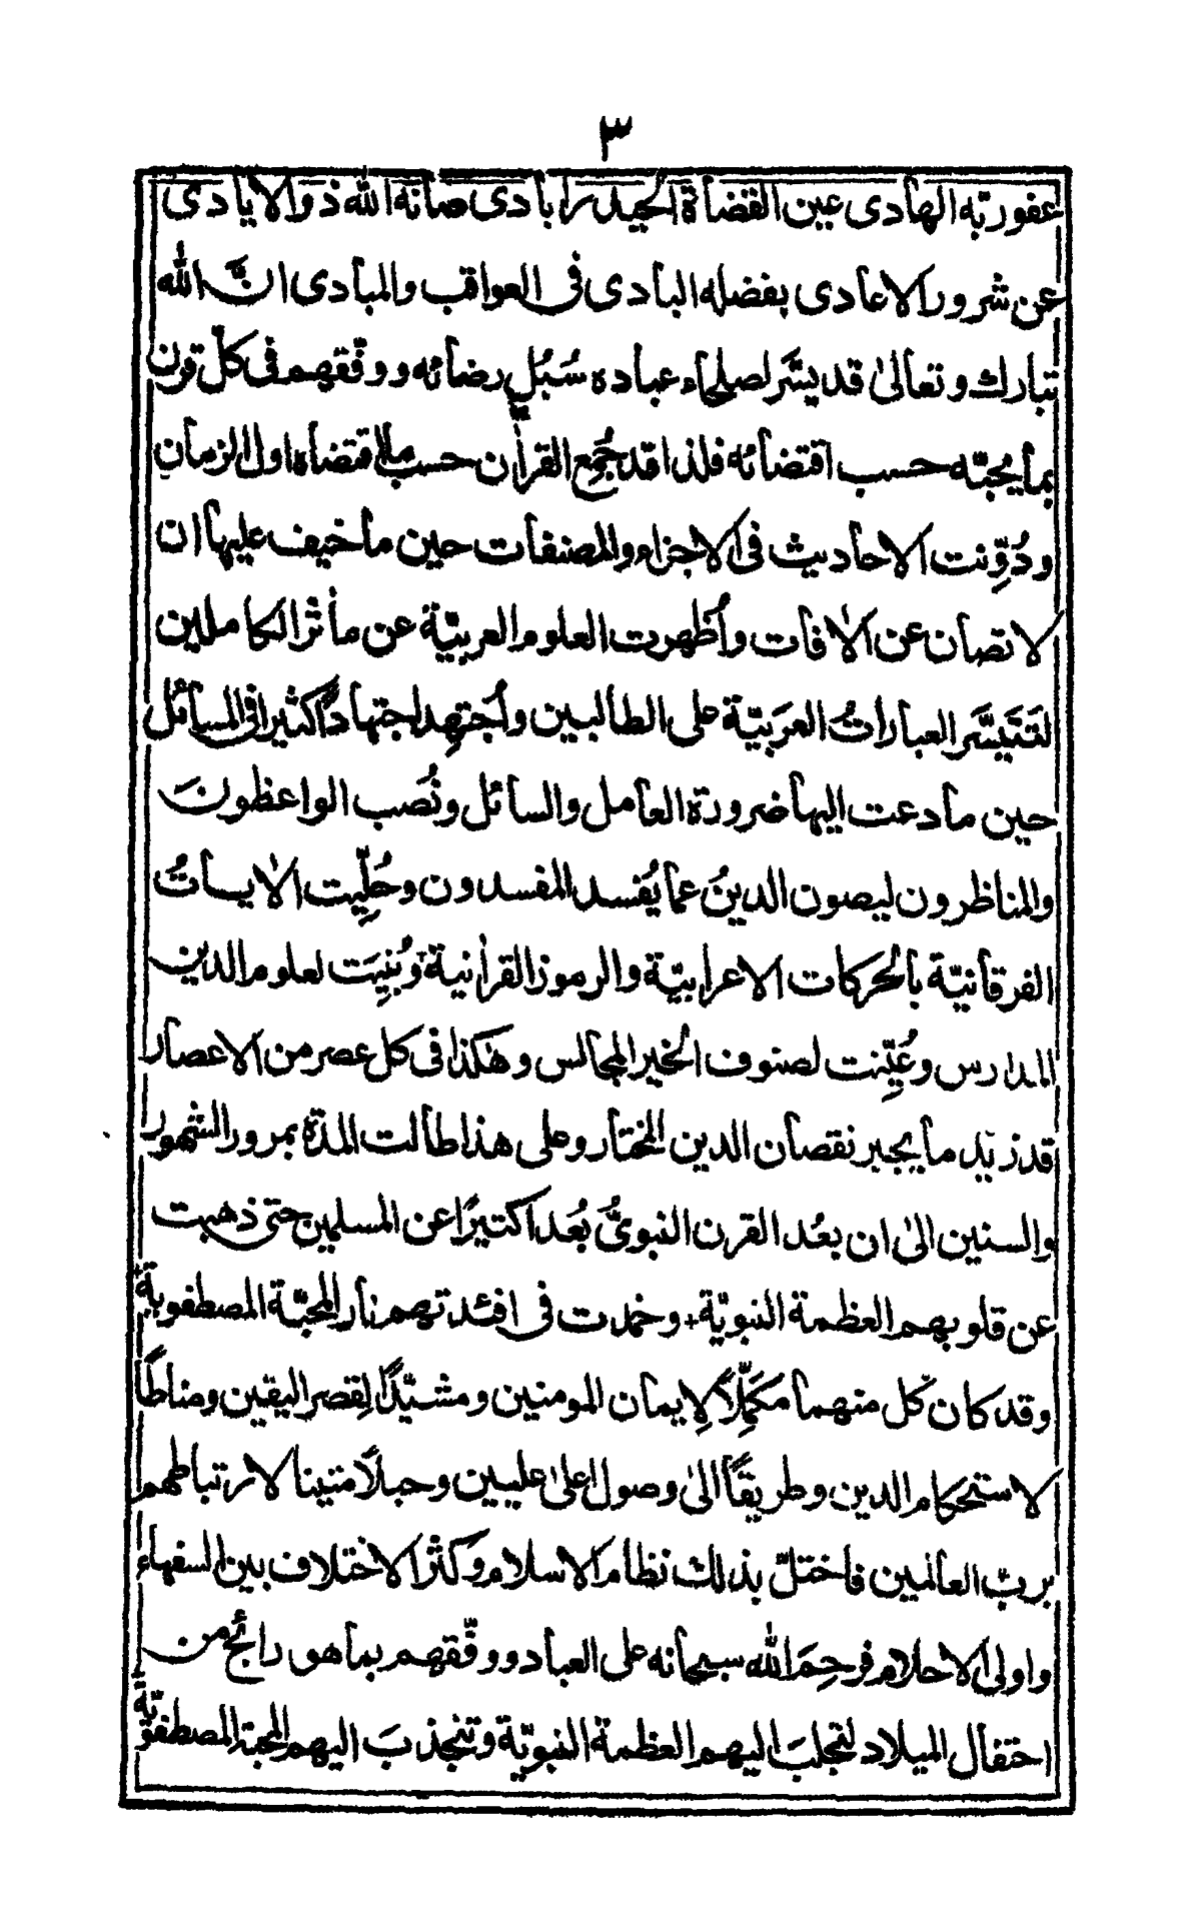 ٣
عفو ربّه الهادى عين القضاة الحيدرابادى صانه الله ذو الايادى
عن شرور الاعادى بفضله البادى فى العواقب والمبادى انَّ الله
تبارك وتعالىٰ قد يسَّر لصلحاء عباده سُبُل رضائه ووفّقهم فى كلّ قرن
بما يُحبّه حسب اقتضائه فلذا قد جُمِع القراٰن حسب ما اقتضاه اول الزمان
ودُوِّنت الاحاديث فى الاجزاء والمصنفات حين ما خيف عليها ان
لا تصان عن الاٰفات واُظهرت العلوم العربيّة عن ماٰثر الكاملين
لتَتَيسَّر العبارات العَربيّة على الطالبين واُجتهِد اجتهادًا كثيرا فى المسائل
حين ما دعت اليها ضرورة العامل والسائل ونُصب الواعظونَ
والمناظرون ليصون الدينُ عما يُفسد المفسدون وحُلِّيت الاٰيات
الفرقانيّة بالحركات الاعرابيّة والرموز القراٰنية وبُنِيَت لعلوم الدين
المدارس وعُيِّنت لصنوف الخير المجالس وهٰكذا فى كل عصر من الاعصار
قد زيد ما يجبر نقصان الدين المختار وعلى هذا طالت المدّة بمرور الشهور
والسنين الىٰ ان بعُد القرن النبوىُّ بُعَدا كثيرًا عن المسلمين حتى ذهبت
عن قلوبهم العظمة النبويّة + وخمدت فى افئدتهم نار المحبّة المصطفوية
وقد كان كل منهما مكمِّلاً لِايمان المومنين ومشيّدًا لِقصر اليقين ومناطًا
لاستحكام الدين وطريقًا الىٰ وصول اعلىٰ عليين وحبلاً متينا لارتباطهم
بربّ العالمين فاختلّ بذلك نظام الاسلام وكثر الاختلاف بين السفهاء
واولى الاحلام فرحِمَ الله سبحانه على العباد ووفّقهم بما هو رائج من
احتفال الميلاد لتجلبَ اليهم العظمة النبويّة وتنجذبَ اليهم المحبة المصطفويّة